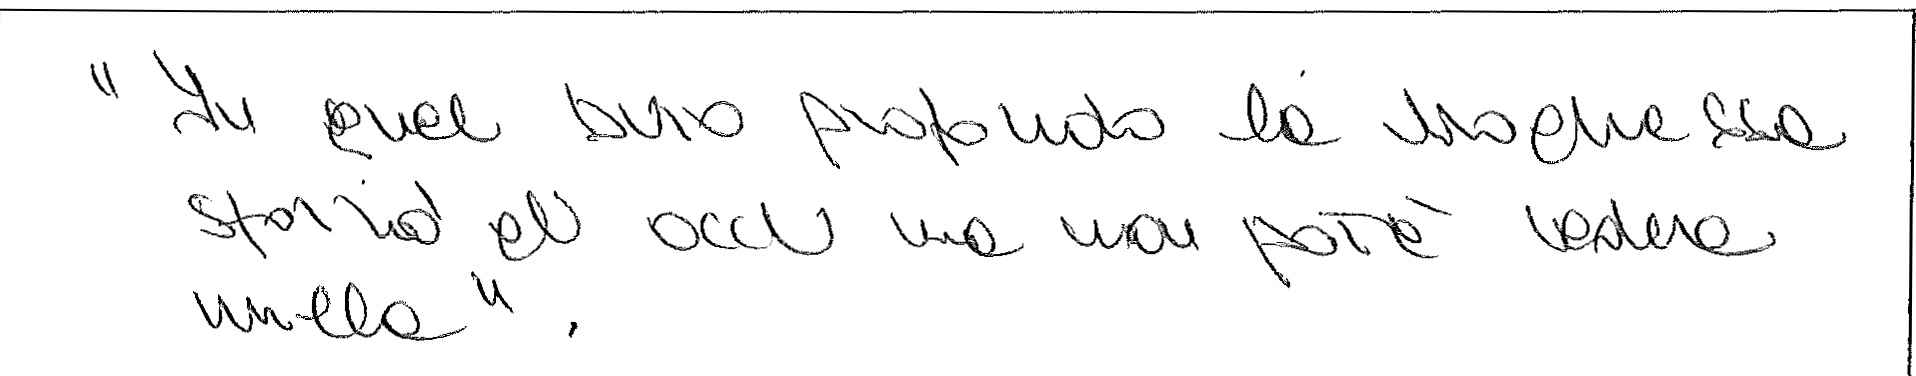 "In quel buio profondo la troghessa
storiò gli occhi ma non potè vedere
nulla".